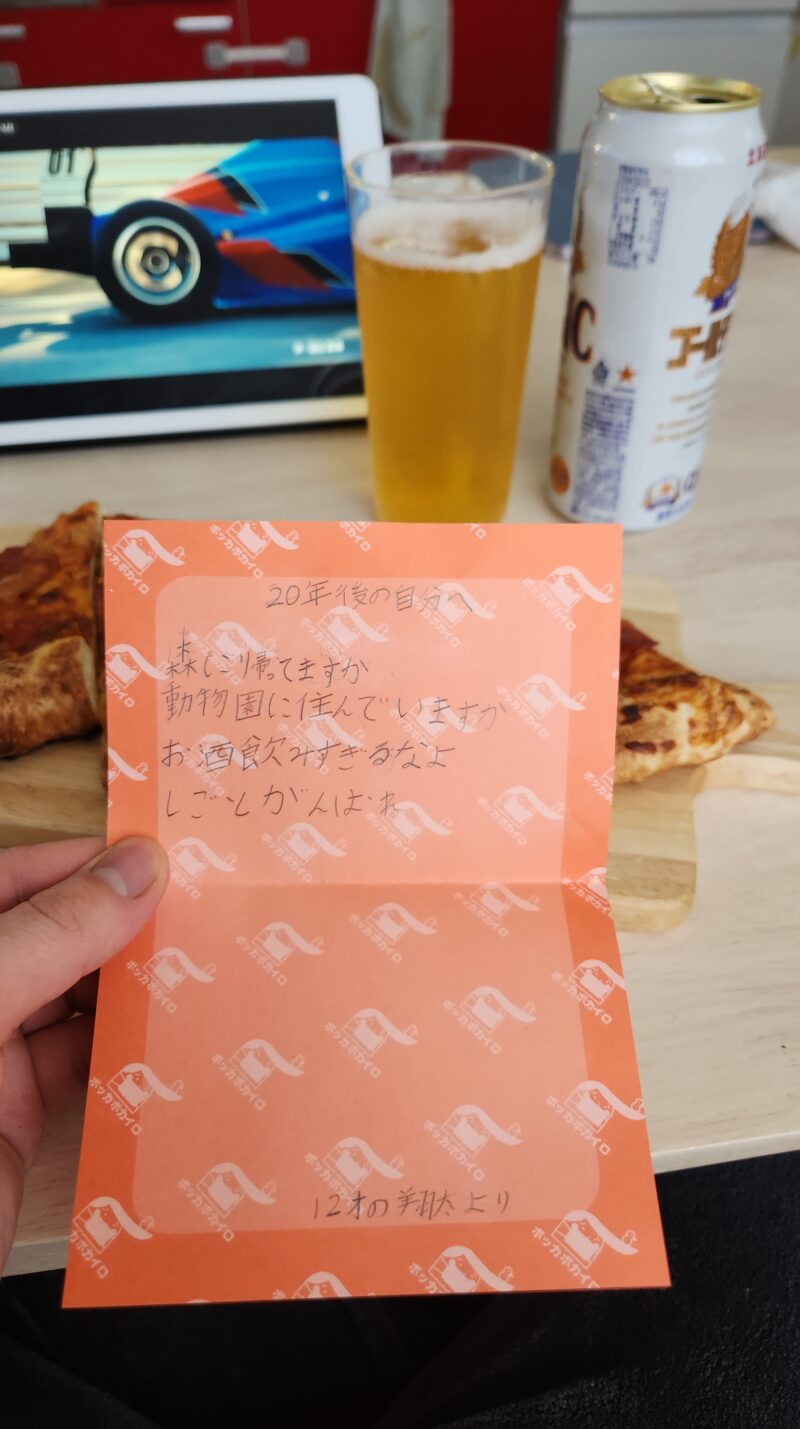 20年後の自分へ
森にに帰ってますか
動物園に住んでいますか
お酒飲みすぎるなよ
しごとがんばれ
12才の翔太より
ポッカポカイロ